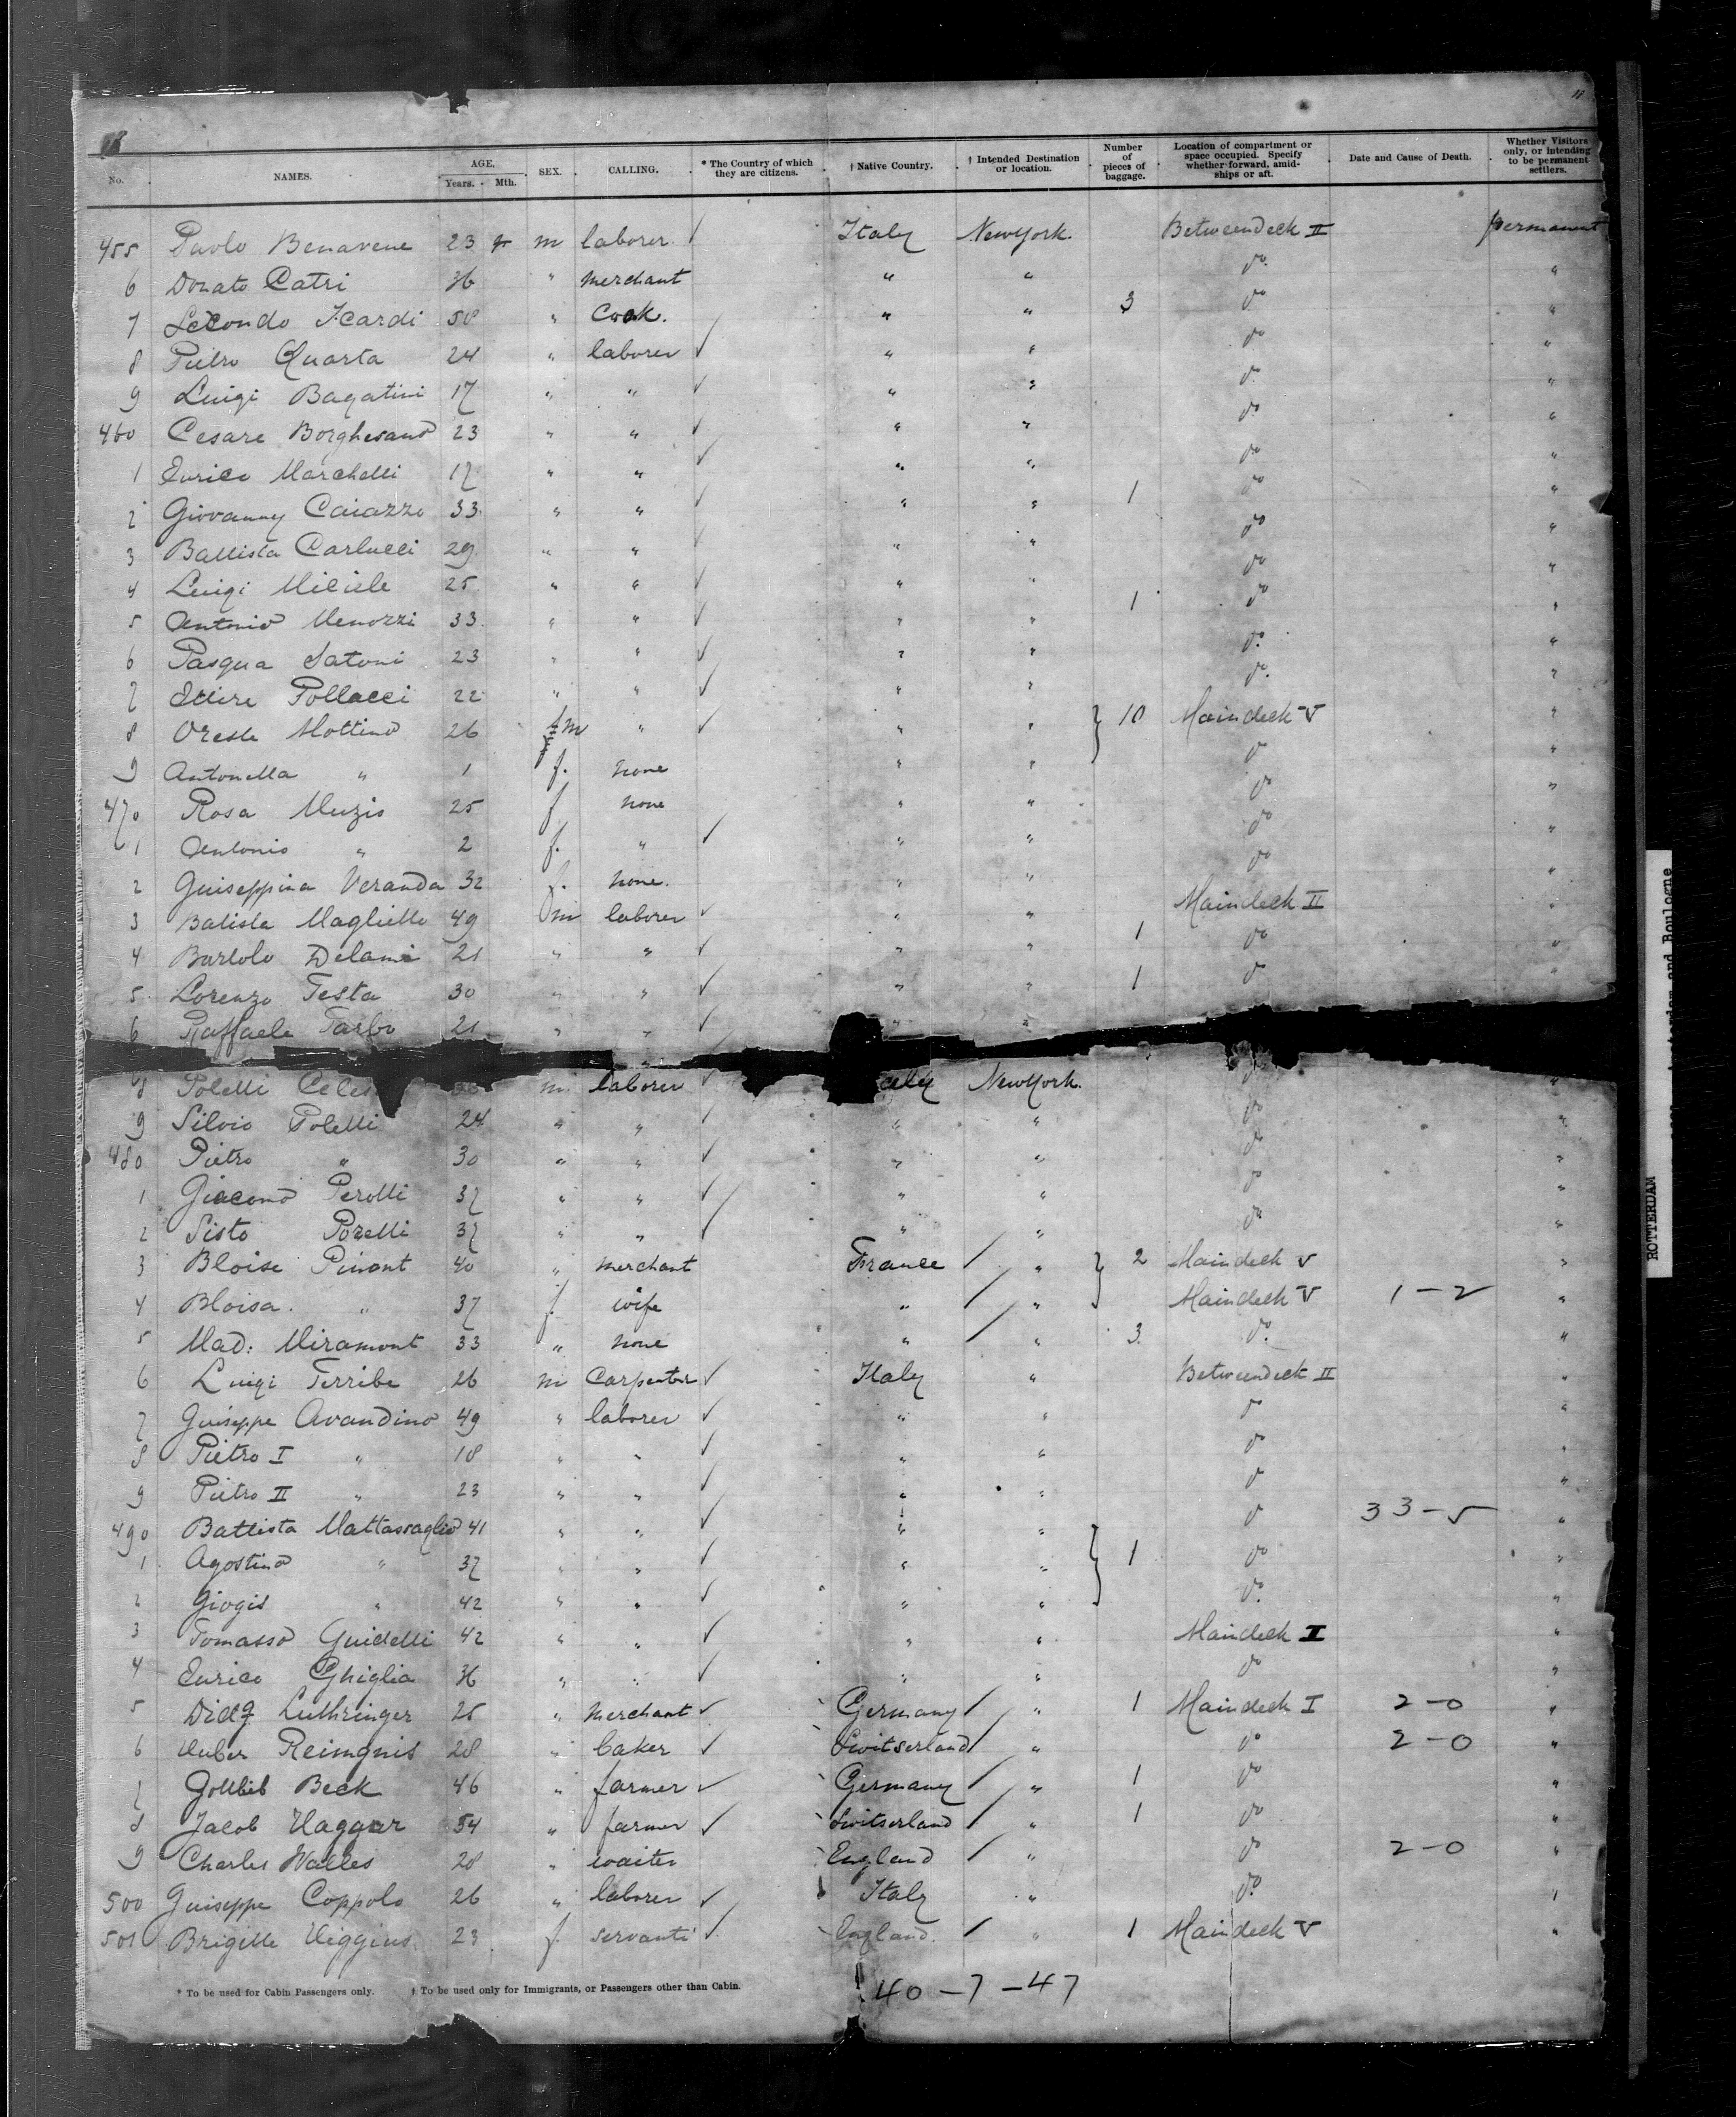 No. NAMES. AGE, Years. Mth. SEX. CALLING. * The Country of which they are citizens. † Native Country. † Intended Destination or location. Number of pieces of baggage. Location of compartment or space occupied. Specify whether forward, amidships or aft. Date and Cause of Death. Whether Visitors only, or intending to be permanent settlers.
455 Paolo Benavene 23 m laborer ✓ Italy New York. Betweendeck II permanent
6 Donato Catri 36 " merchant " " do "
7 Secondo Icardi 58 " Cook. " " 3 do "
8 Pietro Quarta 24 " laborer ✓ " " do "
9 Luigi Bagatini 17 " " ✓ " " do "
460 Cesare Borghesano 23 " " ✓ " " do "
1 Enrico Marchelli 17 " " ✓ " " do "
2 Giovanny Caiazzo 33 " " ✓ " " 1 do "
3 Battista Carlucci 29 " " ✓ " " do "
4 Luigi 25 " " ✓ " " do "
5 Antonio Menozzi 33 " " ✓ " " 1 do "
6 Pasqua Satoni 23 " " ✓ " " do "
7 Ettire Pollacci 22 " " ✓ " " do "
8 Oreste Mottino 26 m " ✓ " " } 10 Maindeck V "
9 Antonella " 1 f. none " " do "
470 Rosa Muzio 25 f none " " do "
1 Antonio " 2 f. " ✓ " " do "
2 Guiseppina Veranda 32 f. none. " " do "
3 Batista Magliette 49 m laborer ✓ " " Maindeck II "
4 Bartolo Delami 21 " " ✓ " " 1 do "
5 Lorenzo Testa 30 " " ✓ " " 1 do "
6 Raffaele Tarbo 21 " " ✓ " "
8 Poletti Celes m laborer ✓ New York. do "
9 Silvio Poletti 24 " " ✓ " " do "
480 Pietro " 30 " " ✓ " " do "
1 Giacomo Perotti 37 " " ✓ " " do "
2 Sisto Porelli 37 " " ✓ " " do "
3 Bloise Pinont 40 " merchant France / " } 2 Maindeck V "
4 Bloisa. " 37 f. wife " / " Maindeck V 1-2 "
5 Mad: Miramont 33 " none " / " 3 do "
6 Luigi Terribe 26 m Carpenter ✓ Italy " Betweendeck II "
7 Guiseppe Avandino 49 " laborer ✓ " " do "
8 Pietro I " 18 " " ✓ " " do "
9 Pietro II " 23 " " ✓ " " do "
490 Battista Mattassaglio 41 " " ✓ " " do 33-5 "
1 Agostino " 37 " " ✓ " " } 1 do "
2 Giogio " 42 " " ✓ " " do "
3 Tomasso Guidelli 42 " " ✓ " " Maindeck I "
4 Enrico Ghiglia 36 " " ✓ " " do "
5 Luthringer 25 " merchant ✓ Germany / " 1 Maindeck I 2-0 "
6 Huber Reimgnis 28 " baker ✓ Switserland / " do 2-0 "
7 Gottlieb Beck 46 " farmer ✓ Germany / " 1 do "
8 Jacob Haggar 54 " farmer ✓ Switserland / " 1 do "
9 Charles Walles 28 " waiter England / " do 2-0 "
500 Guiseppe Coppolo 26 " laborer ✓ Italy " do "
501 Brigitte Higgins 23 f servant ✓ England. / " 1 Maindeck V "
* To be used for Cabin Passengers only. † To be used only for Immigrants, or Passengers other than Cabin.
40-7-47
ROTTERDAM
and Boulogne